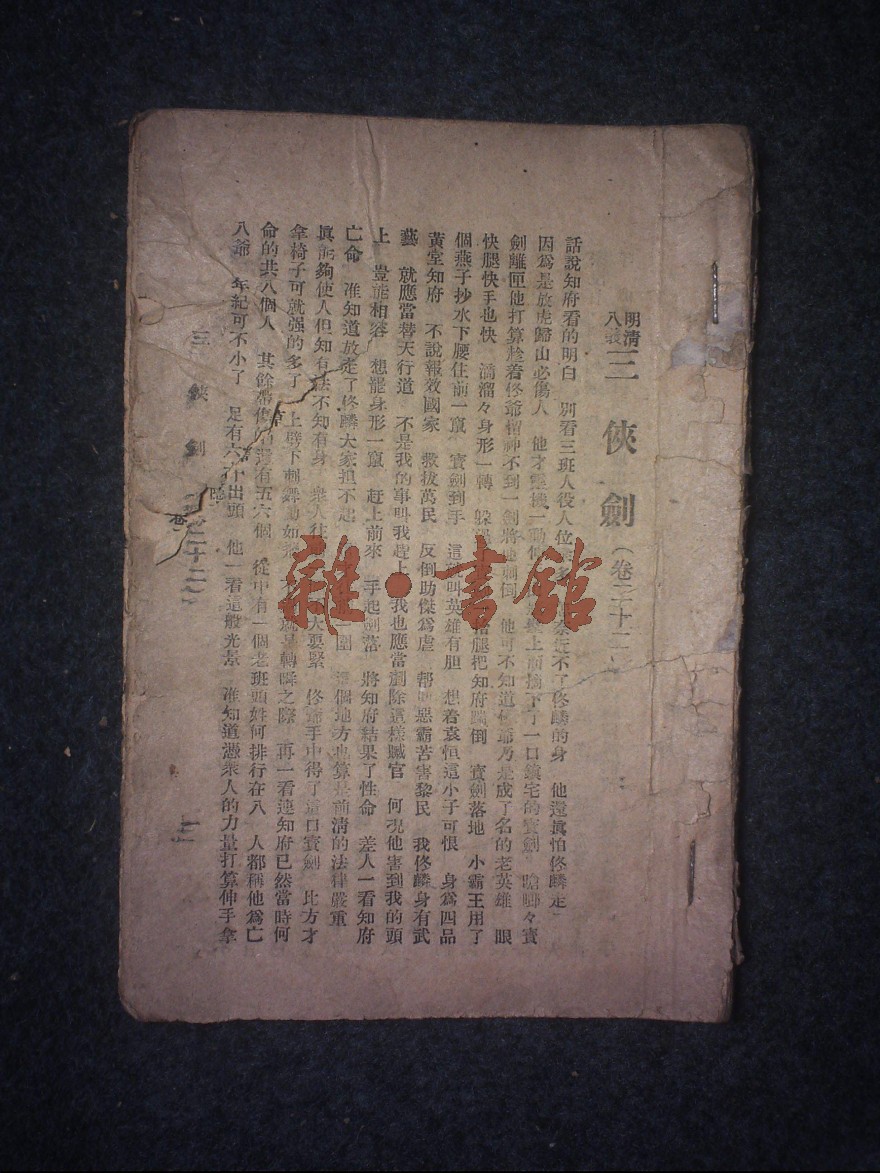 明清
八義
三俠劍（卷三十二）
話說知府看的明白 別看三班人役人位 不了佟麟的身 他還眞怕佟麟走
因爲是放虎歸山必傷人 他才靈機一動 上前摘下了一口鎮宅的寶劍 嗆啷々寶
劍離匣他打算趁着佟爺留神不到一劍將他刺倒 他可不知道佟爺乃是成了名的老英雄 眼
快腿快手也快 滴溜々身形一轉 躲 腿把知府踢倒 寶劍落地 小霸王用了
個燕子抄水下腰往前一竄 寶劍到手 這就叫英雄有胆 想着袁恒這小子可恨 身爲四品
黃堂知府 不說報效國家 救拔萬民 反倒助傑爲虐 帮助惡霸苦害黎民 我佟麟身有武
藝 就應當替天行道 不是我的事叫我趕上 我也應當剷除這樣贓官 何况他害到我的頭
上 豈能相容 想罷身形一竄 赶上前來 手起劍落 將知府結果了性命 差人一看知府
亡命 准知道放走了佟麟大家担不起 一圍 這個地方也算是前清的法律嚴重
眞能夠使人但知有法不知有身 衆人往 大要緊 佟爺手中得了這口寶劍 比方才
拿椅子可就强的多了 上劈下刺舞動如 就是轉瞬之際 再一看連知府已然當時倒
命的共八個人 其餘帶傷 還有五六個 從中有一個老班頭姓何排行在八 人都稱他爲亡
八爺 年紀可不小了 足有六十出頭 他一看這般光景 准知道憑衆人的力量打算伸手拿
三俠劍 卷三十二
一
雜·書館